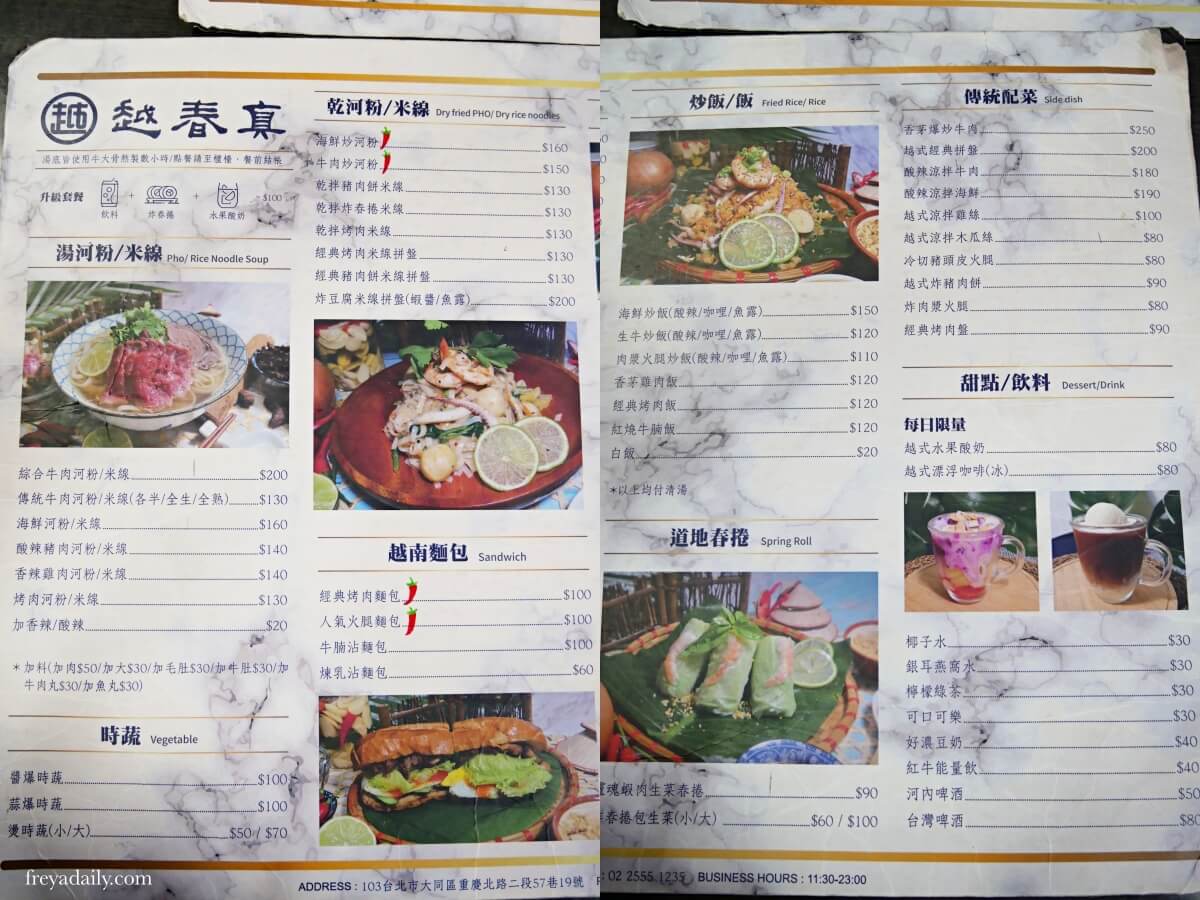 越
越春真
湯底皆使用牛大骨熬製數小時/點餐請至櫃檯,餐前結帳
升級套餐
+
+
$100
飲料
炸春捲
水果酸奶
湯河粉/米線 Pho/ Rice Noodle Soup
綜合牛肉河粉/米線 $200
傳統牛肉河粉/米線(各半/全生/全熟) $130
海鮮河粉/米線 $160
酸辣豬肉河粉/米線 $140
香辣雞肉河粉/米線 $140
烤肉河粉/米線 $130
加香辣/酸辣 $20
*加料(加肉$50/加大$30/加毛肚$30/加牛肚$30/加
牛肉丸$30/加魚丸$30)
時蔬 Vegetable
醬爆時蔬 $100
蒜爆時蔬 $100
燙時蔬(小/大) $50 / $70
乾河粉/米線 Dry fried PHO/ Dry rice noodles
海鮮炒河粉 $160
牛肉炒河粉 $150
乾拌豬肉餅米線 $130
乾拌炸春捲米線 $130
乾拌烤肉米線 $130
經典烤肉米線拼盤 $130
經典豬肉餅米線拼盤 $130
炸豆腐米線拼盤(蝦醬/魚露) $200
越南麵包 Sandwich
經典烤肉麵包 $100
人氣火腿麵包 $100
牛腩沾麵包 $100
煉乳沾麵包 $60
炒飯/飯 Fried Rice/ Rice
海鮮炒飯(酸辣/咖哩/魚露) $150
生牛炒飯(酸辣/咖哩/魚露) $120
肉漿火腿炒飯(酸辣/咖哩/魚露) $110
香茅雞肉飯 $120
經典烤肉飯 $120
紅燒牛腩飯 $120
白飯 $20
*以上均付清湯
道地春捲 Spring Roll
魂蝦肉生菜春捲 $90
春捲包生菜(小/大) $60 / $100
傳統配菜 Side dish
香茅爆炒牛肉 $250
越式經典拼盤 $200
酸辣涼拌牛肉 $180
酸辣涼拌海鮮 $190
越式涼拌雞絲 $100
越式涼拌木瓜絲 $80
冷切豬頭皮火腿 $80
越式炸豬肉餅 $90
炸肉漿火腿 $80
經典烤肉盤 $90
甜點/飲料 Dessert/Drink
每日限量
越式水果酸奶 $80
越式漂浮咖啡(冰) $80
椰子水 $30
銀耳燕窩水 $30
檸檬綠茶 $30
可口可樂 $30
好濃豆奶 $40
紅牛能量飲 $40
河內啤酒 $50
台灣啤酒 $80
freyadaily.com
ADDRESS : 103台北市大同區重慶北路二段57巷19號
: 02 2555 1235 BUSINESS HOURS : 11:30-23:00